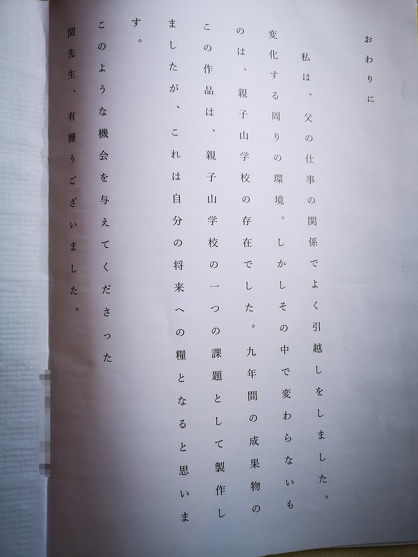 おわりに
私は、父の仕事の関係でよく引越しをしました。
変化する周りの環境。しかしその中で変わらないも
のは、親子山学校の存在でした。九年間の成果物の
この作品は、親子山学校の一つの課題として製作し
ましたが、これは自分の将来への糧となると思いま
す。
このような機会を与えてくださった
関先生、有難うございました。